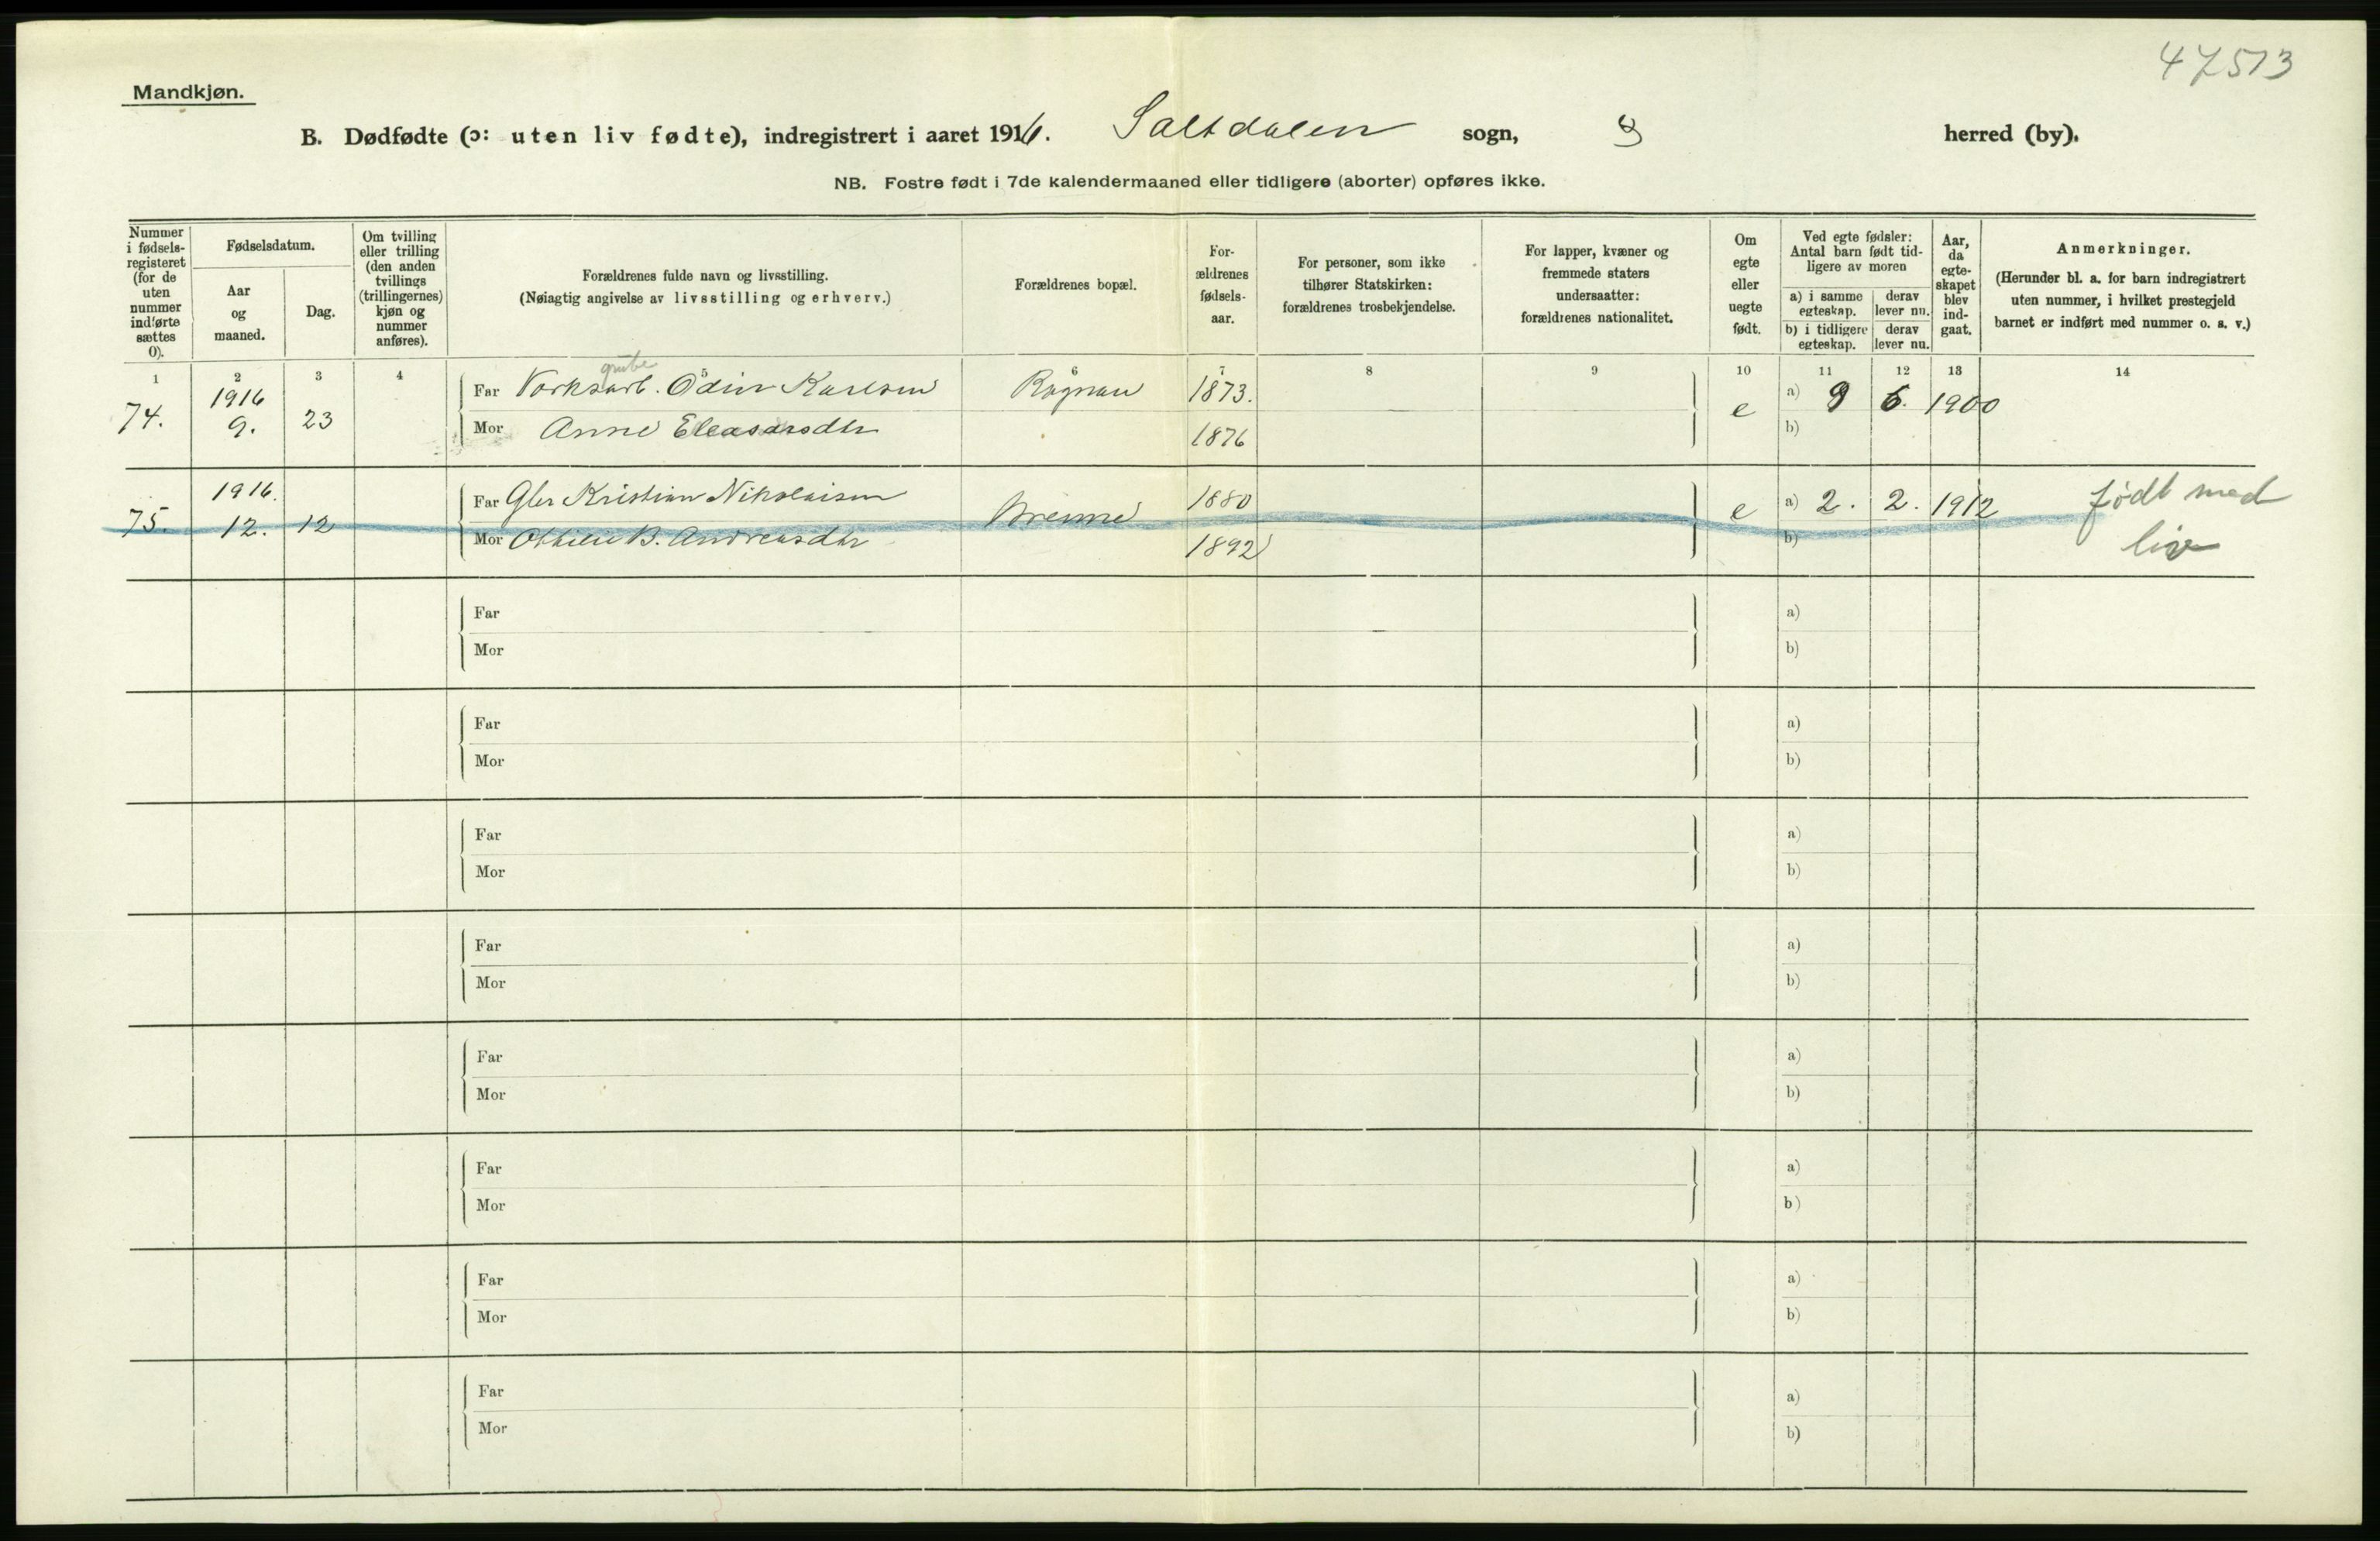 47513
Mandkjøn.
B. Dødfødte (ɔ: uten liv fødte), indregistrert i aaret 1916. Saltdalen sogn, herred (by).
NB. Fostre født i 7de kalendermaaned eller tidligere (aborter) opføres ikke.
Nummer i fødsels-registeret (for de uten nummer indførte sættes 0).
Fødselsdatum.
Aar og maaned.
Dag.
Om tvilling eller trilling (den anden tvillings (trillingernes) kjøn og nummer anføres).
Forældrenes fulde navn og livsstilling.
(Nøiagtig angivelse av livsstilling og erhverv.)
Forældrenes bopæl.
For-ældrenes fødsels-aar.
For personer, som ikke tilhører Statskirken: forældrenes trosbekjendelse.
For lapper, kvæner og fremmede staters undersaatter: forældrenes nationalitet.
Om egte eller uegte født.
Ved egte fødsler: Antal barn født tid-ligere av moren
a) i samme egteskap.
derav lever nu.
b) i tidligere egteskap.
derav lever nu.
Aar, da egte-skapet blev ind-gaat.
Anmerkninger.
(Herunder bl. a. for barn indregistrert uten nummer, i hvilket prestegjeld barnet er indført med nummer o. s. v.)
1 2 3 4 5 6 7 8 9 10 11 12 13 14
grube
74. 1916 9. 23 Far Verksarb. Odin Karlsen Rognan 1873. e a) 9 6. 1900
Mor Anne Eleasarsdtr 1876 b)
75. 1916. 12. 12 Far Gbr Kristian Nikolaisen Brenne 1880 e a) 2. 2. 1912 født med liv
Mor Othilie B. Andreasdtr 1892 b)
Far a)
Mor b)
Far a)
Mor b)
Far a)
Mor b)
Far a)
Mor b)
Far a)
Mor b)
Far a)
Mor b)
Far a)
Mor b)
Far a)
Mor b)